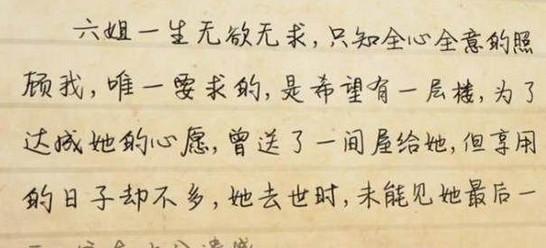 六姐一生无欲无求,只知全心全意的照
顾我,唯一要求的,是希望有一层楼,为了
达成她的心愿,曾送了一间屋给她,但享用
的日子却不多,她去世时,未能见她最后一